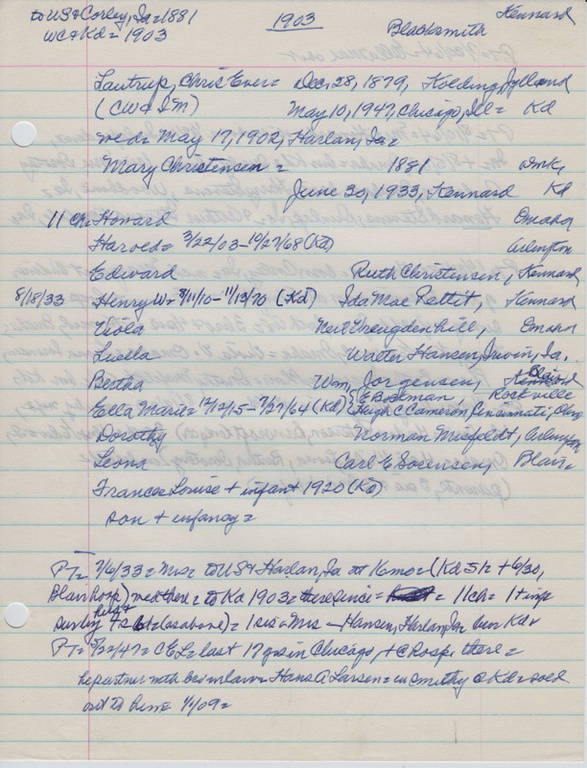 to US & Corley, Ia = 1881 1903 Blacksmith Kennard
WC & Kd = 1903
Lautrup, Chris Ever = Dec. 28, 1879, Kolding, Jylland
(CW & IM) May 10, 1947, Chicago, Ill = Kd
wed = May 17, 1902, Harlan, Ia =
Mary Christensen = 1881 Dmk,
June 30, 1933, Kennard Kd
11 Ch. Howard Omaha
Harold = 3/22/03-10/27/68 (Kd) Arlington
Edward Ruth Christensen, Kennard
8/18/33 Henry W = 3/11/10-11/13/70 (Kd) Ida Mae Pettit, Kennard
Viola Neil Vreugdenhill, Omaha
Luella Walter Hansen, Irwin, Ia.
Bertha Wm, Jorgensen, Blair
Ella Marie = 12/12/15-7/27/64 (Kd) E Boleman, Rockville
Hugh C Cameron, Cincinnati,
Dorothy Norman Misfeldt, Arlington
Leona Carl E Sorensen, Blair
Frances Louise + infant 1920 (Kd)
son + infancy =
PT = 7/6/33 = Mrs = to US & Harlan, Ia at 16 mo = (Kd 5/2 + 6/30,
Blair Hosp) wed there = to Kd 1903 = there since = = 11 ch = 1 +
surv by hus + (as above) = 1 sis = Mrs - Hansen, Harlan, Ia = bur Kd =
PT = 5/22/47 = CEL = last 17 yrs in Chicago, + @ Hosp there =
he partner with bro in law = Hans A Larsen = in smithy @ Kd = sold
out to him = 4/09 =